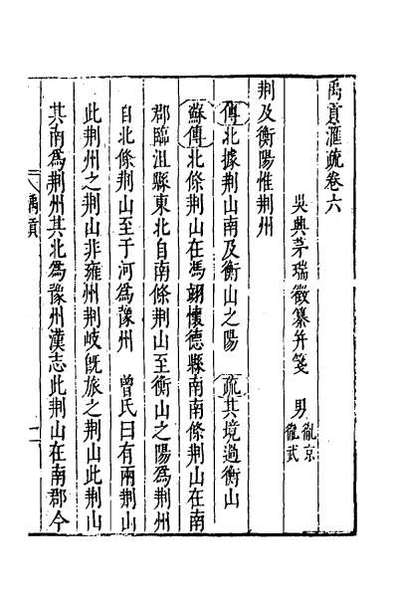 禹貢滙疏卷六
吳興茅瑞徵纂并箋　男胤京胤武
荆及衡陽惟荆州
傳北據荆山南及衡山之陽　疏其境過衡山
蘇傳北條荆山在馮翊懷德縣南南條荆山在南
郡臨沮縣東北自南條荆山至衡山之陽爲荆州
自北條荆山至于河爲豫州　曾氏曰有兩荆山
此荆州之荆山非雍州荆岐旣旅之荆山此荆山
其南爲荆州其北爲豫州漢志此荆山在南郡今
禹貢
一